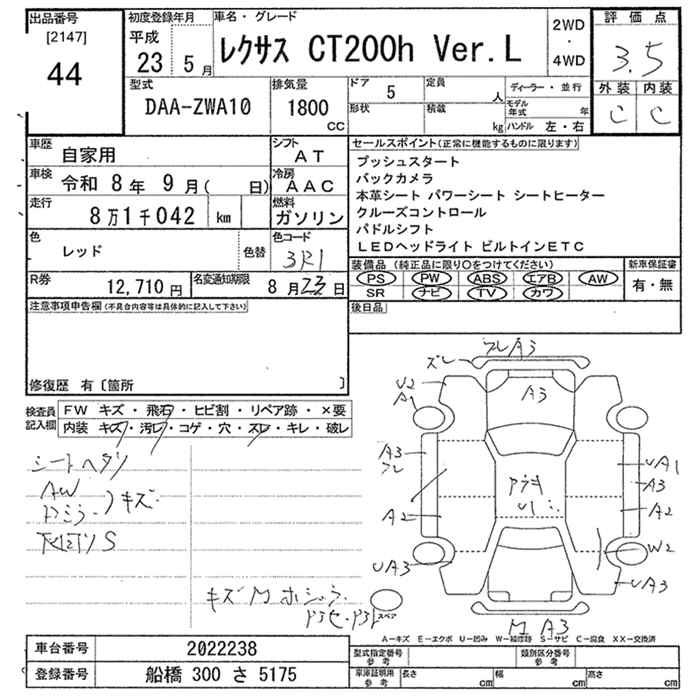 出品番号
[2147]
44
初度登録年月
平成
23 5月
車名・グレード
レクサス CT200h Ver.L
2WD
・
4WD
評価点
3.5
外装 内装
C C
型式
DAA-ZWA10
排気量
1800
cc
ドア
5
定員
人
形状
積載
kg
ディーラー・並行
モデル年式 年
ハンドル 左・右
車歴
自家用
シフト
AT
車検
令和 8年 9月( 日)
冷房
AAC
走行
8万1千042 km
燃料
ガソリン
色
レッド
色替
色コード
3R1
R券
12,710円
名変通知期限
8月23日
セールスポイント(正常に機能するものに限ります)
プッシュスタート
バックカメラ
本革シート パワーシート シートヒーター
クルーズコントロール
パドルシフト
LEDヘッドライト ビルトインETC
装備品(純正品に限り○をつけてください)
PS PW ABS エアB AW
SR ナビ TV カワ
新車保証書
有・無
後日品
注意事項申告欄(不具合内容等は具体的に記入して下さい)
修復歴 有〔箇所 〕
検査員記入欄
FW キズ・飛石・ヒビ割・リペア跡・×要
内装 キズ・汚レ・コゲ・穴・スレ・キレ・破レ
シートヘタリ
AW
ドミラー 〕キズ
下廻りS
キズ M ホシュウ
ズレ
フレA3
A3
U2
A1
A3
フレ
A2
UA3
アラキ
U1
UA1
A3
A2
W2
UA3
M A3
スペア
A-キズ E-エクボ U-凹み W-補修跡 S-サビ C-腐食 XX-交換済
車台番号 2022238
登録番号 船橋 300 さ 5175
型式指定番号
参考
類別区分番号
参考
車庫証明用
参考
長さ cm 幅 cm 高さ cm